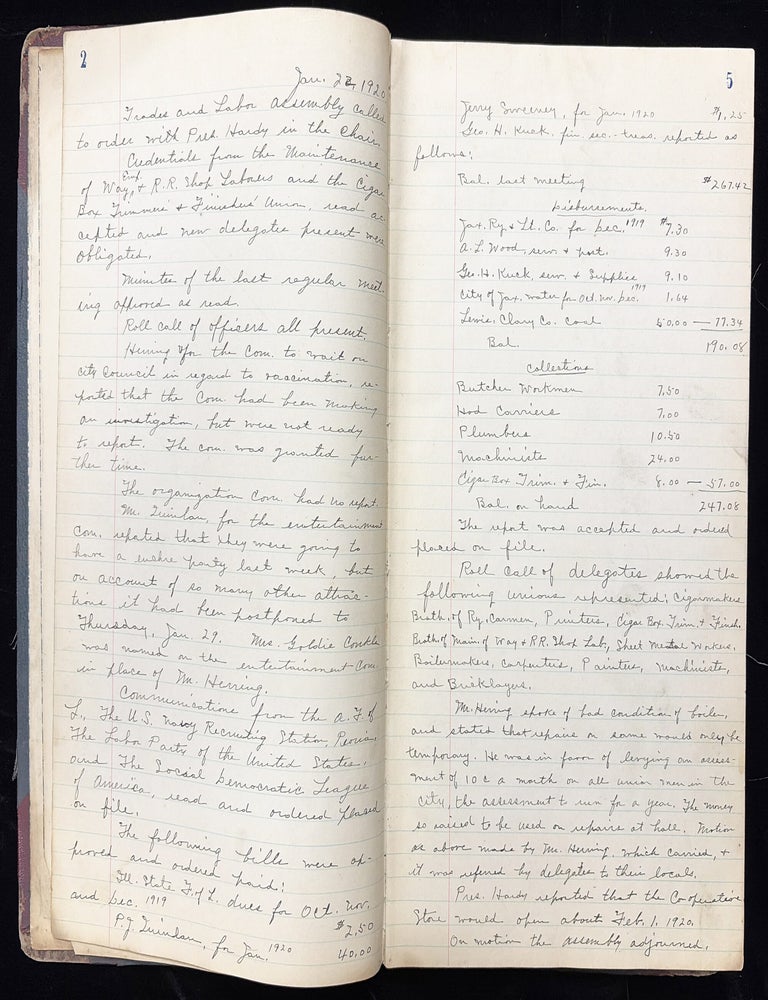 2
Jan. 22, 1920
Trades and Labor Assembly called
to order with Pres. Hardy in the Chair.
Credentials from the Maintenance
of Way Emp. & R.R. Shop Laborers and the Cigar
Box Trimmers & Finishers' Union, read ac-
cepted and new delegates present were
obligated.
Minutes of the last regular meet-
ing approved as read.
Roll call of officers all present.
Herring for the Com. to wait on
city council in regard to vaccination, re-
ported that the Com had been making
an investigation, but were not ready
to report. The com. was granted fur-
ther time.
The organization Com. had no report.
Mr. Quinlan, for the entertainment
Com. reported that they were going to
have a euchre party last week, but
on account of so many other attrac-
tions it had been postponed to
Thursday, Jan. 29. Mrs. Goldie Conklin
was named on the entertainment Com.
in place of Mr. Herring.
Communications from the A. F. of
L., The U.S. Navy Recruiting Station, Peoria,
The Labor Party of the United States,
and The Social Democratic League
of America, read and ordered placed
on file.
The following bills were ap-
proved and ordered paid:
Ill. State F. of L. dues for Oct. Nov.
and Dec. 1919 $2.50
P.J. Quinlan, for Jan. 1920 40.00
5
Jerry Sweeney, for Jan. 1920 $1.25
Geo. H. Kuck, fin. sec.-treas. reported as
follows:
Bal. last meeting $267.42
Disbursements.
Jax. Ry. & Lt. Co. for Dec. 1919 $7.30
A. L. Wood, serv. & post. 9.30
Geo. H. Kuck, serv. & Supplies 9.10
City of Jax. water for Oct. Nov. Dec. 1919 1.64
Lewis, Clary Co. Coal 50.00 — 77.34
Bal. 190.08
Collections
Butcher Workmen 7.50
Hod Carriers 7.00
Plumbers 10.50
Machinists 24.00
Cigar Box Trim. & Fin. 8.00 — 57.00
Bal. on hand 247.08
The report was accepted and ordered
placed on file.
Roll call of delegates showed the
following unions represented: Cigarmakers
Broth. of Ry. Carmen, Printers, Cigar Box Trim. & Finish.
Broth. of Main. of Way & R.R. Shop Lab., Sheet Metal Workers,
Boilermakers, Carpenters, Painters, Machinists,
and Bricklayers.
Mr. Herring spoke of bad condition of boiler,
and stated that repairs on same would only be
temporary. He was in favor of levying an assess-
ment of 10 c a month on all union men in the
city, the assessment to run for a year. The money
so raised to be used on repairs at hall. Motion
as above made by Mr. Herring, which carried, &
it was referred by delegates to their locals.
Pres. Hardy reported that the Cooperative
Store would open about Feb. 1, 1920.
On motion the assembly adjourned.